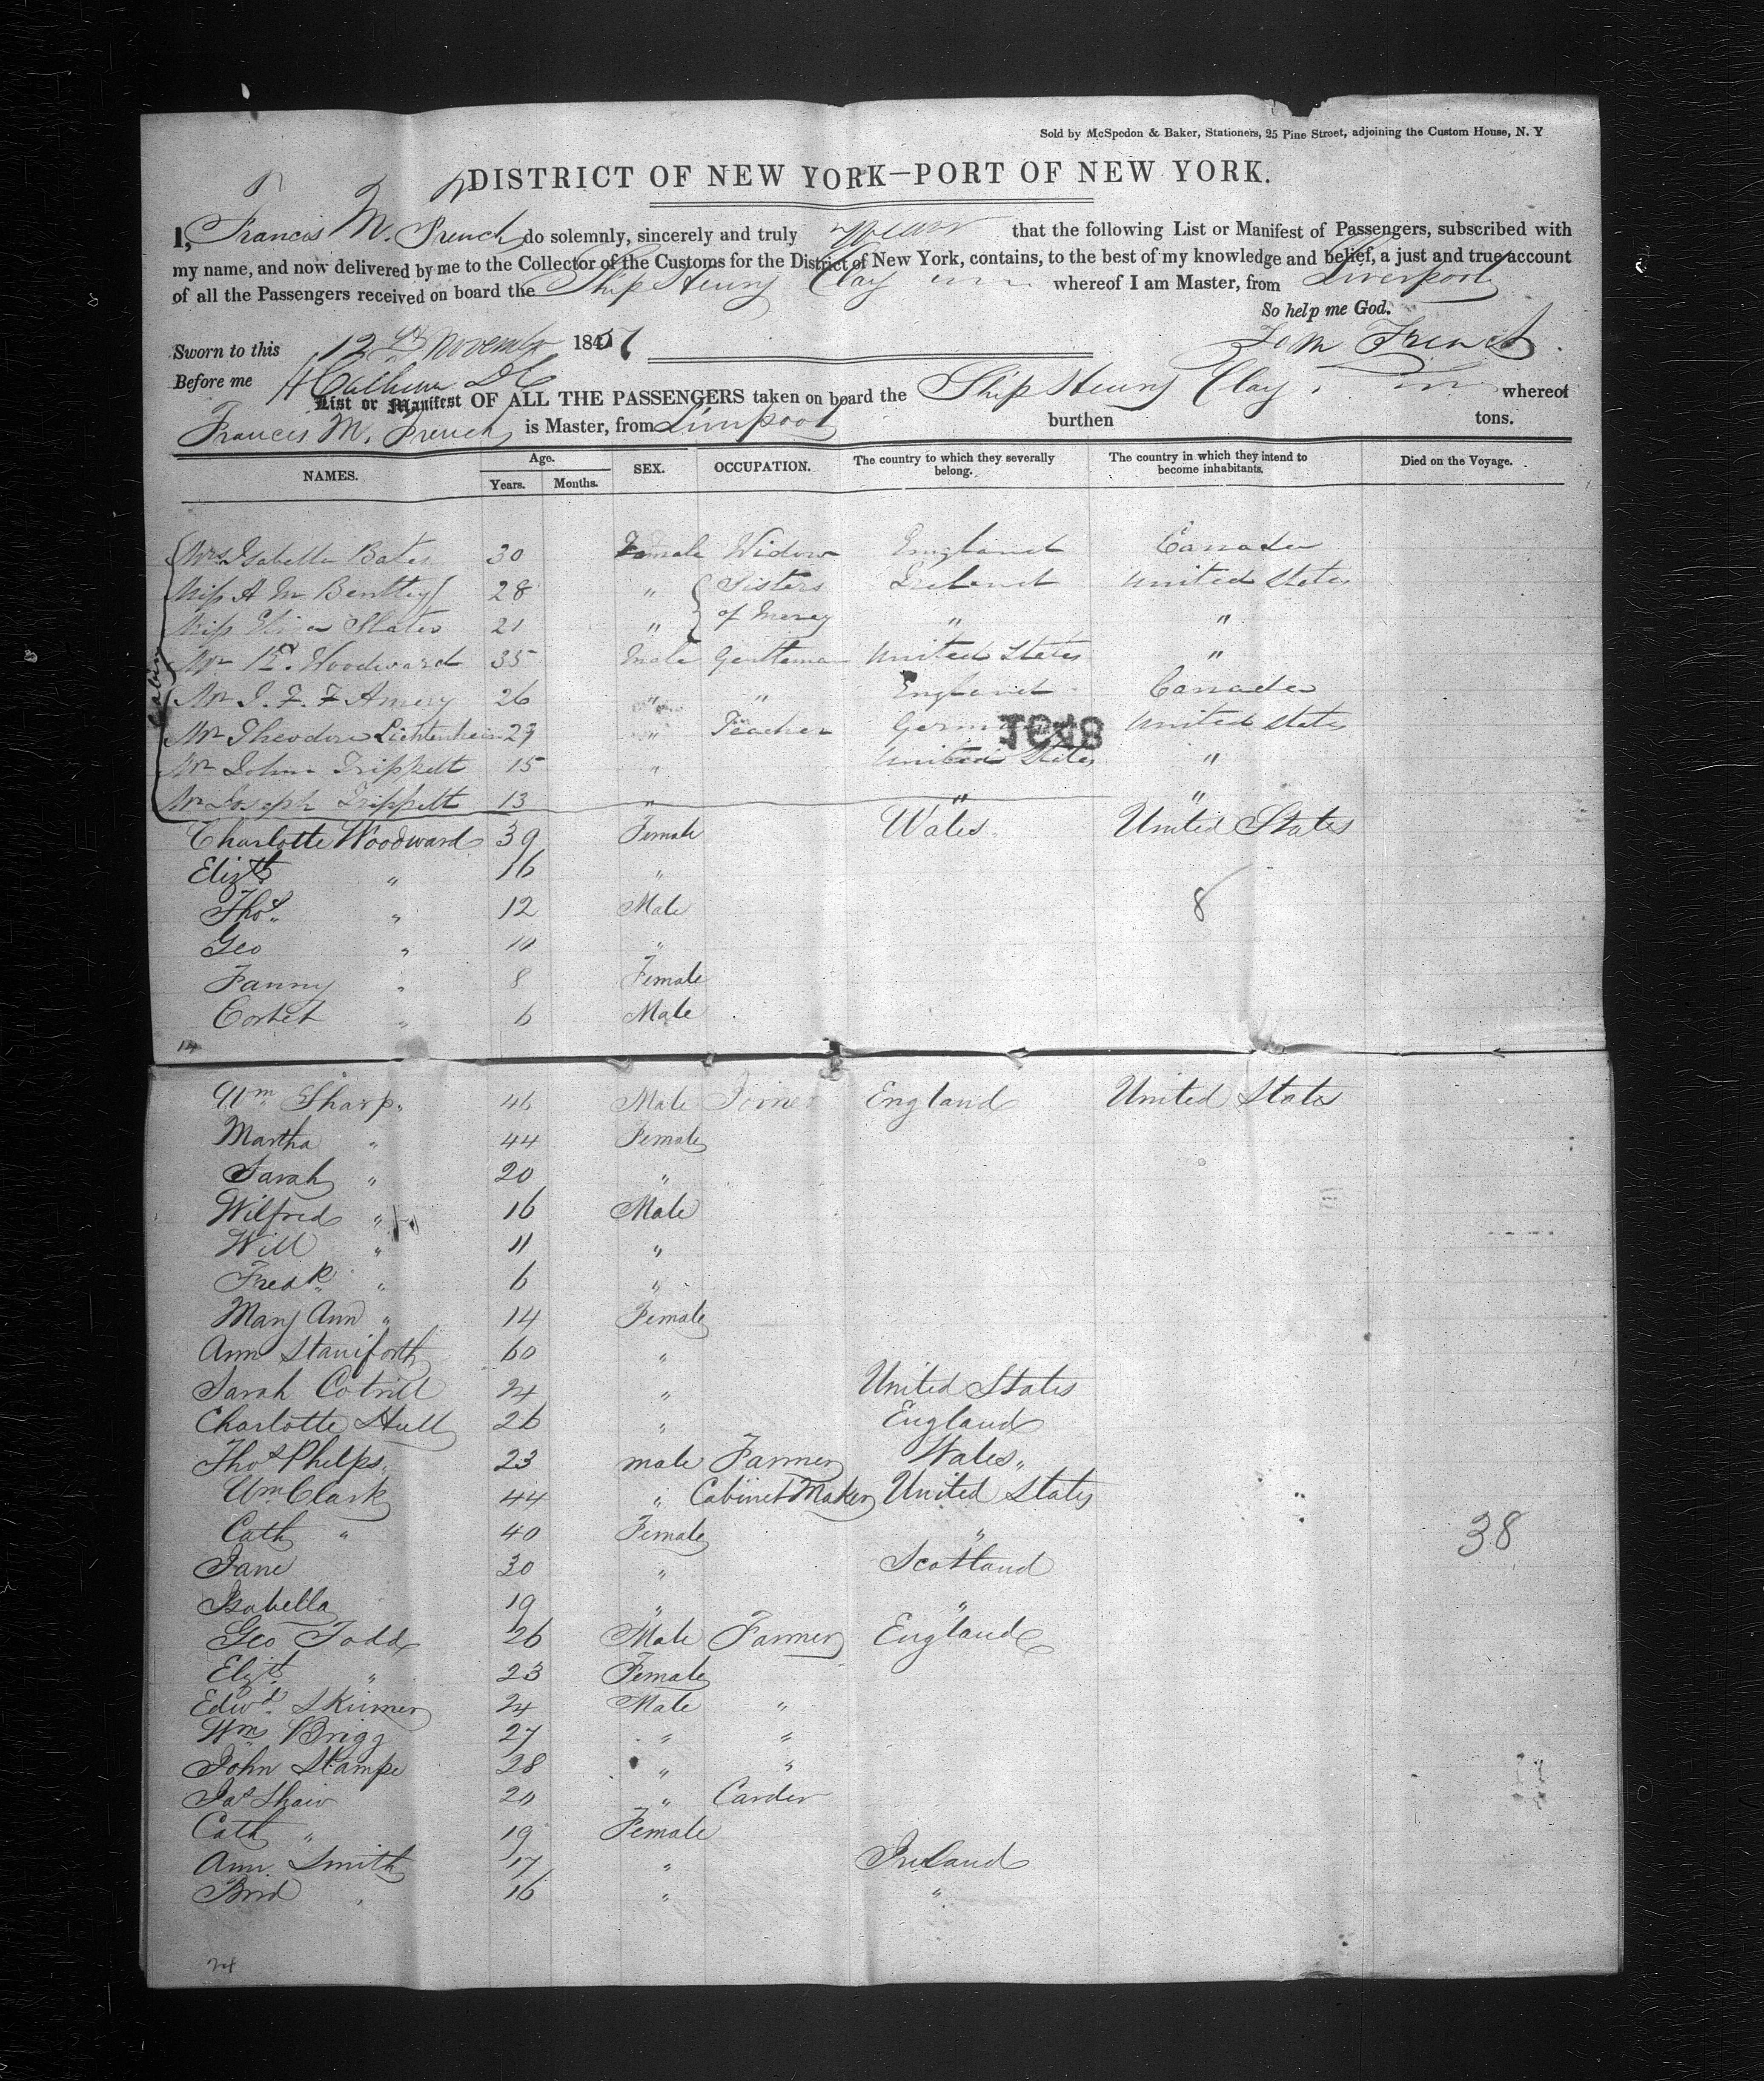 Sold by McSpedon & Baker, Stationers, 25 Pine Street, adjoining the Custom House, N. Y
DISTRICT OF NEW YORK—PORT OF NEW YORK.
I, Francis M. French do solemnly, sincerely and truly swear that the following List or Manifest of Passengers, subscribed with
my name, and now delivered by me to the Collector of the Customs for the District of New York, contains, to the best of my knowledge and belief, a just and true account
of all the Passengers received on board the Ship Henry Clay whereof I am Master, from Liverpool
So help me God.
Sworn to this 12th November 1847 F. M French
Before me
List or Manifest OF ALL THE PASSENGERS taken on board the Ship Henry Clay whereof
Francis M. French is Master, from Liverpool burthen tons.
NAMES. Age. Years. Months. SEX. OCCUPATION. The country to which they severally belong. The country in which they intend to become inhabitants. Died on the Voyage.
Cabin
Mrs Isabella Bates 30 Female Widow England Canada
Miss A M Bentley 28 " Sisters Ireland United States
Miss Slater 21 " of Mercy " "
Mr Rd. Woodward 35 Male Gentleman United States "
Mr J. F. F Amery 26 " " England Canada
Mr Theodore Lichtenhein 29 " Teacher Germany United States
1048
Mr John Trippett 15 " United States "
Mr Joseph Trippett 13 " " "
Charlotte Woodward 39 Female Wales United States
Elizth " 16 "
Thos " 12 Male 8
Geo " 10 "
Fanny " 8 Female
Corbet " 6 Male
14
Wm Sharp 46 Male Joiner England United States
Martha " 44 Female
Sarah " 20 "
Wilfred " 16 Male
Will " 11 "
Fredk " 6 "
Mary Ann " 14 Female
Ann Staniforth 60 "
Sarah Cotrill 24 " United States
Charlotte Hull 26 " England
Thos Phelps 23 male Farmer Wales
Wm Clark 44 " Cabinet Maker United States
Cath " 40 Female " 38
Jane 30 " Scotland
Isabella 19 " "
Geo Todd 26 Male Farmer England
Elizt " 23 Female
Edwd. Skinner 24 Male "
Wm Brigg 27 " "
John Stampe 28 " "
Jas Shaw 20 " Carder
Cath " 19 Female
Ann Smith 17 " Ireland
Brid " 16 " "
24